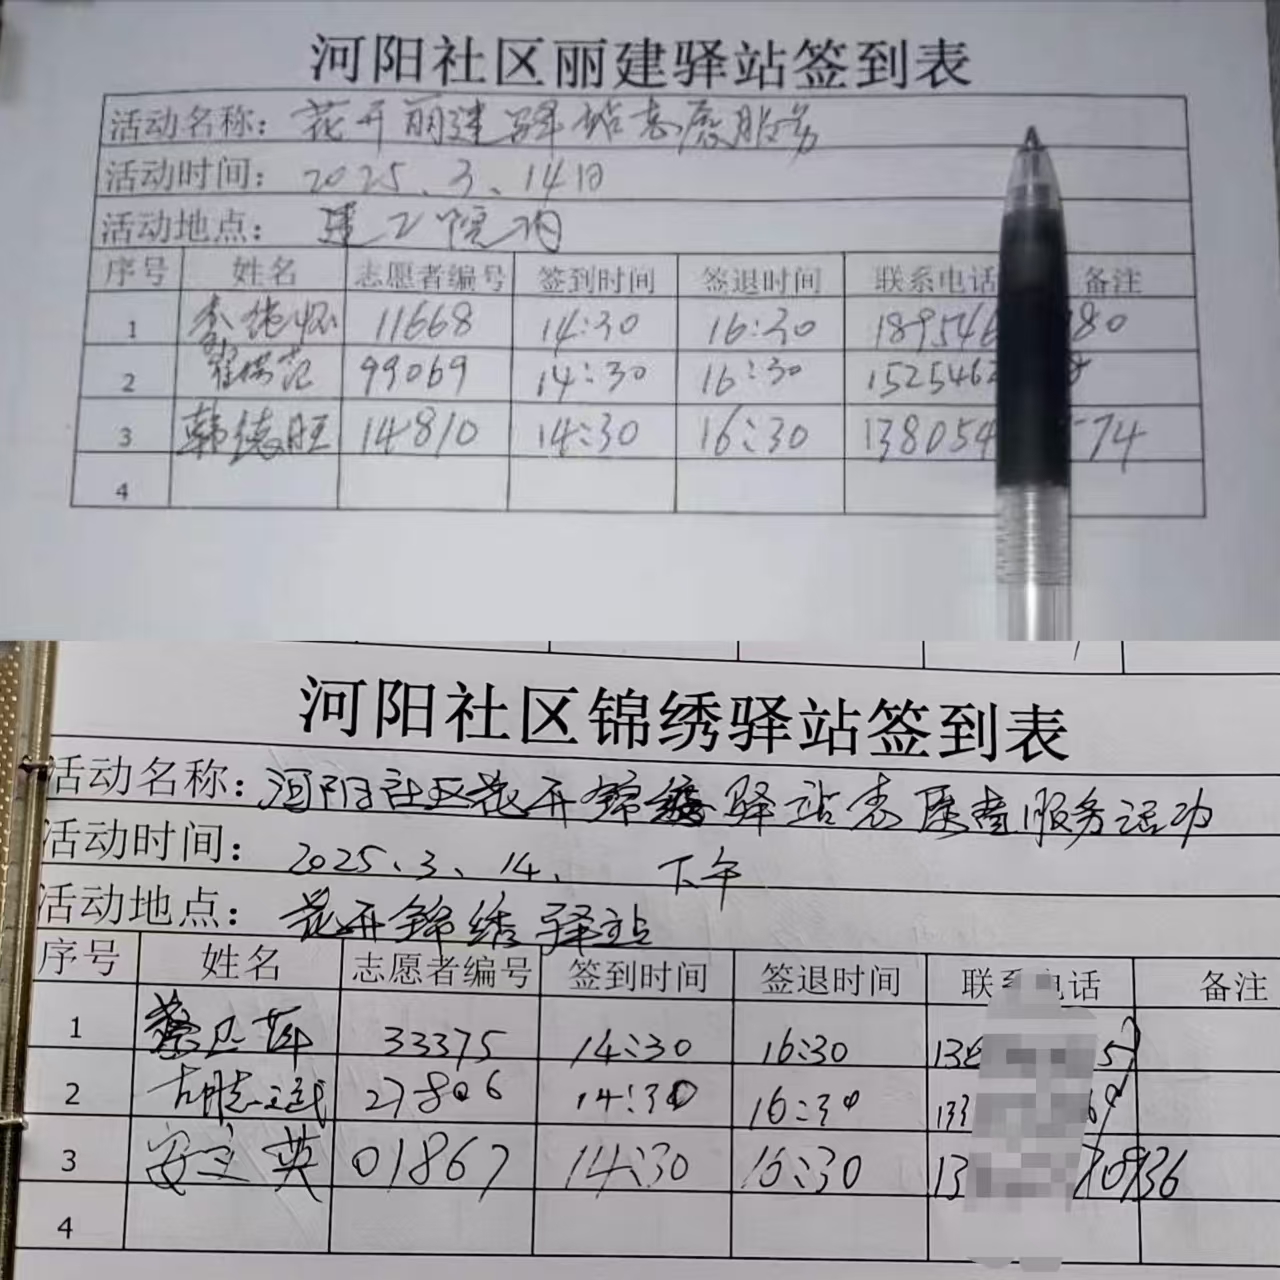 河阳社区丽建驿站签到表
活动名称：花开丽建驿站志愿服务
活动时间：2025、3、14日
活动地点：建工院内
序号 姓名 志愿者编号 签到时间 签退时间 联系电话 备注
1 11668 14:30 16:30 189546 80
2 99069 14:30 16:30 1525462
3 韩德旺 14810 14:30 16:30 138054 74
4
河阳社区锦绣驿站签到表
活动名称：河阳社区花开锦绣驿站志愿者服务活动
活动时间：2025、3、14、 下午
活动地点：花开锦绣驿站
序号 姓名 志愿者编号 签到时间 签退时间 联系电话 备注
1 33375 14:30 16:30
2 27806 14:30 16:30 133
3 安立英 01867 14:30 16:30 13 36
4